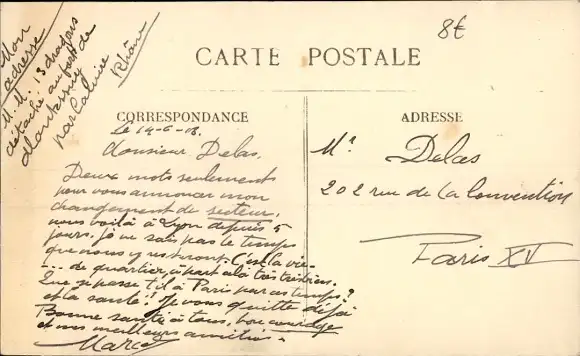 8€
Mon
adresse
M. M. 13 dragons
détaché au fort de
Montessuy
par Caluire
Rhône
CARTE POSTALE
CORRESPONDANCE
Le 14-6-18.
Monsieur Delas,
Deux mots seulement
pour vous annoncer mon
changement de secteur,
nous voilà à Lyon depuis 5
jours, je ne sais pas le temps
que nous y resterons. C'est la vie
de quartier, à part cela très bien.
Que se passe t'il à Paris par ces temps?
et la santé! Je vous quitte déjà
Bonne santé à tous, bon courage
et mes meilleurs amitiés.
Marcel
ADRESSE
Mr. Delas
202 rue de la Convention
Paris XV